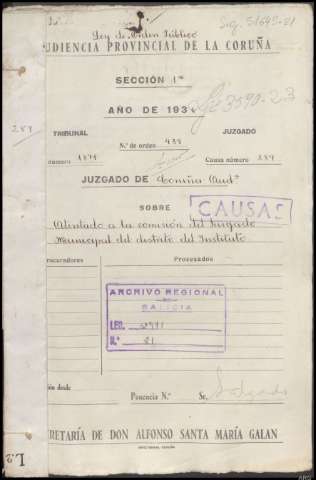 Ley de Orden Público
Sig. 51645-21
UDIENCIA PROVINCIAL DE LA CORUÑA
SECCIÓN 1ª
AÑO DE 193
TRIBUNAL
JUZGADO
257
N.º de orden 438
número 1078
Causa número 257
JUZGADO DE Coruña Aud.ª
SOBRE
CAUSAS
Atentado a la comisión del Juzgado
Municipal del distrito del Instituto
ocuradores
Procesados
ARCHIVO REGIONAL
GALICIA
LEG.
N.º 21
ón desde
Ponencia N.º
Sr. Salgado
CRETARÍA DE DON ALFONSO SANTA MARÍA GALAN
L.2